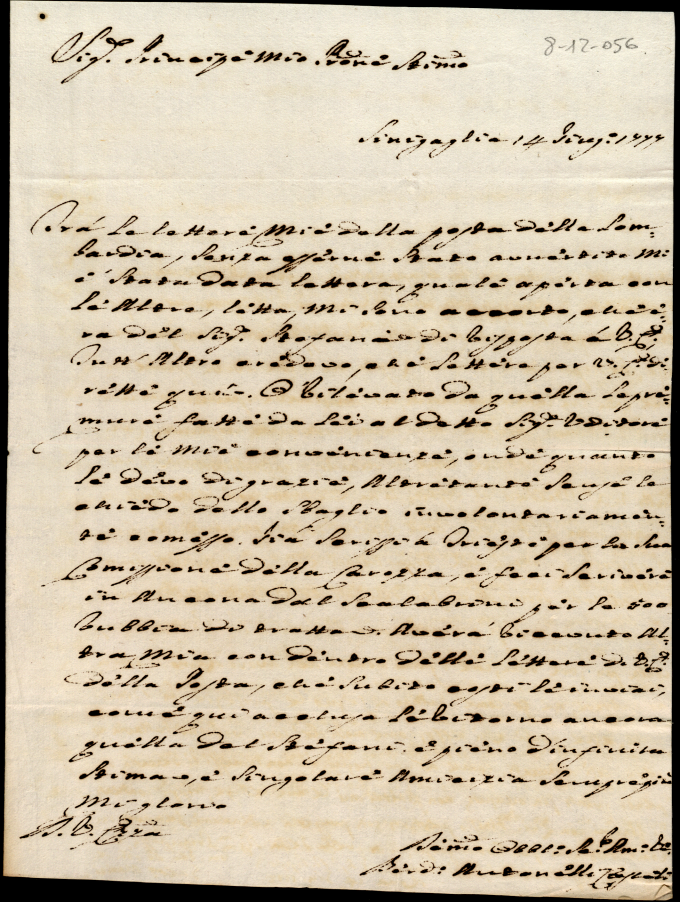 8-12-056
Sig.r Principe mio P.rone Stim.mo
Sinigaglia 14 Giug.o 1777
Trà le lettere mie della posta della Lom-
bardia, senza esserne stato avvertito mi
è stata data lettera, quale aperta con
le altre, letta, mi sono accorto, che é-
ra del Sig.r Stefani di risposta á V. E.,
tutt'altro credevo, che lettere per V. E. di-
rette quì. O rilevato da quella le pre-
mure fatte da Lei al detto Sig.r Uditore
per le mie convenienze, onde quanto
le devo di grazie, altretante scuse le
chiedo dello sbaglio involontariamen-
te comesso. Già scrissi à Trieste per la sua
Comissione della Carozza, e feci scrivere
in Ancona dal Scalabrini per le 500
rubbia di tratta. Averá ricevuto al-
tra mia con dentro delle lettere di V. E.
della Posta, che subito costì le inviai,
come quì acclusa le ritorno ancora
quella del Stefani. e pieno d'infinita
stima, e singolare amicizia sempre più
mi glorio
D. V. Ecc.za
Dev.mo Obbl.o Se.r Am.o
Antonelli